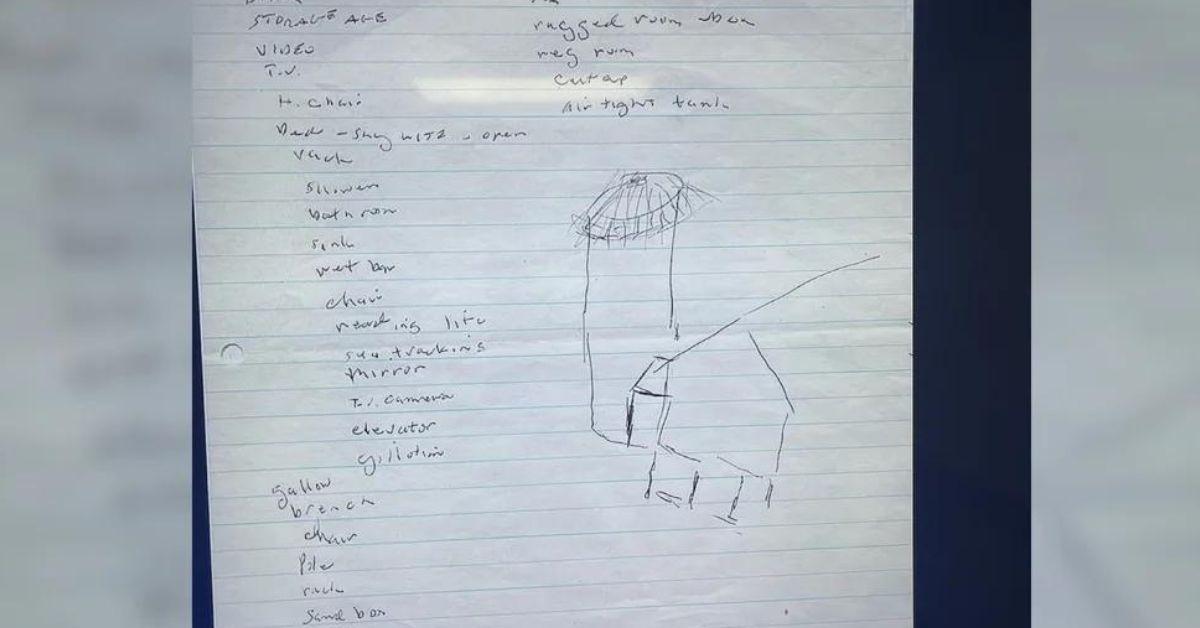 STORAGE AGE
VIDEO
T.V.
H. chair
Bed - open
rack
shower
bathroom
sink
wet bar
chair
reading lite
sun tracking
mirror
T.V. camera
elevator
gillotin
gallow
branch
chair
Pole
rack
Sand box
rugged room
reg room
cut up
air tight tank